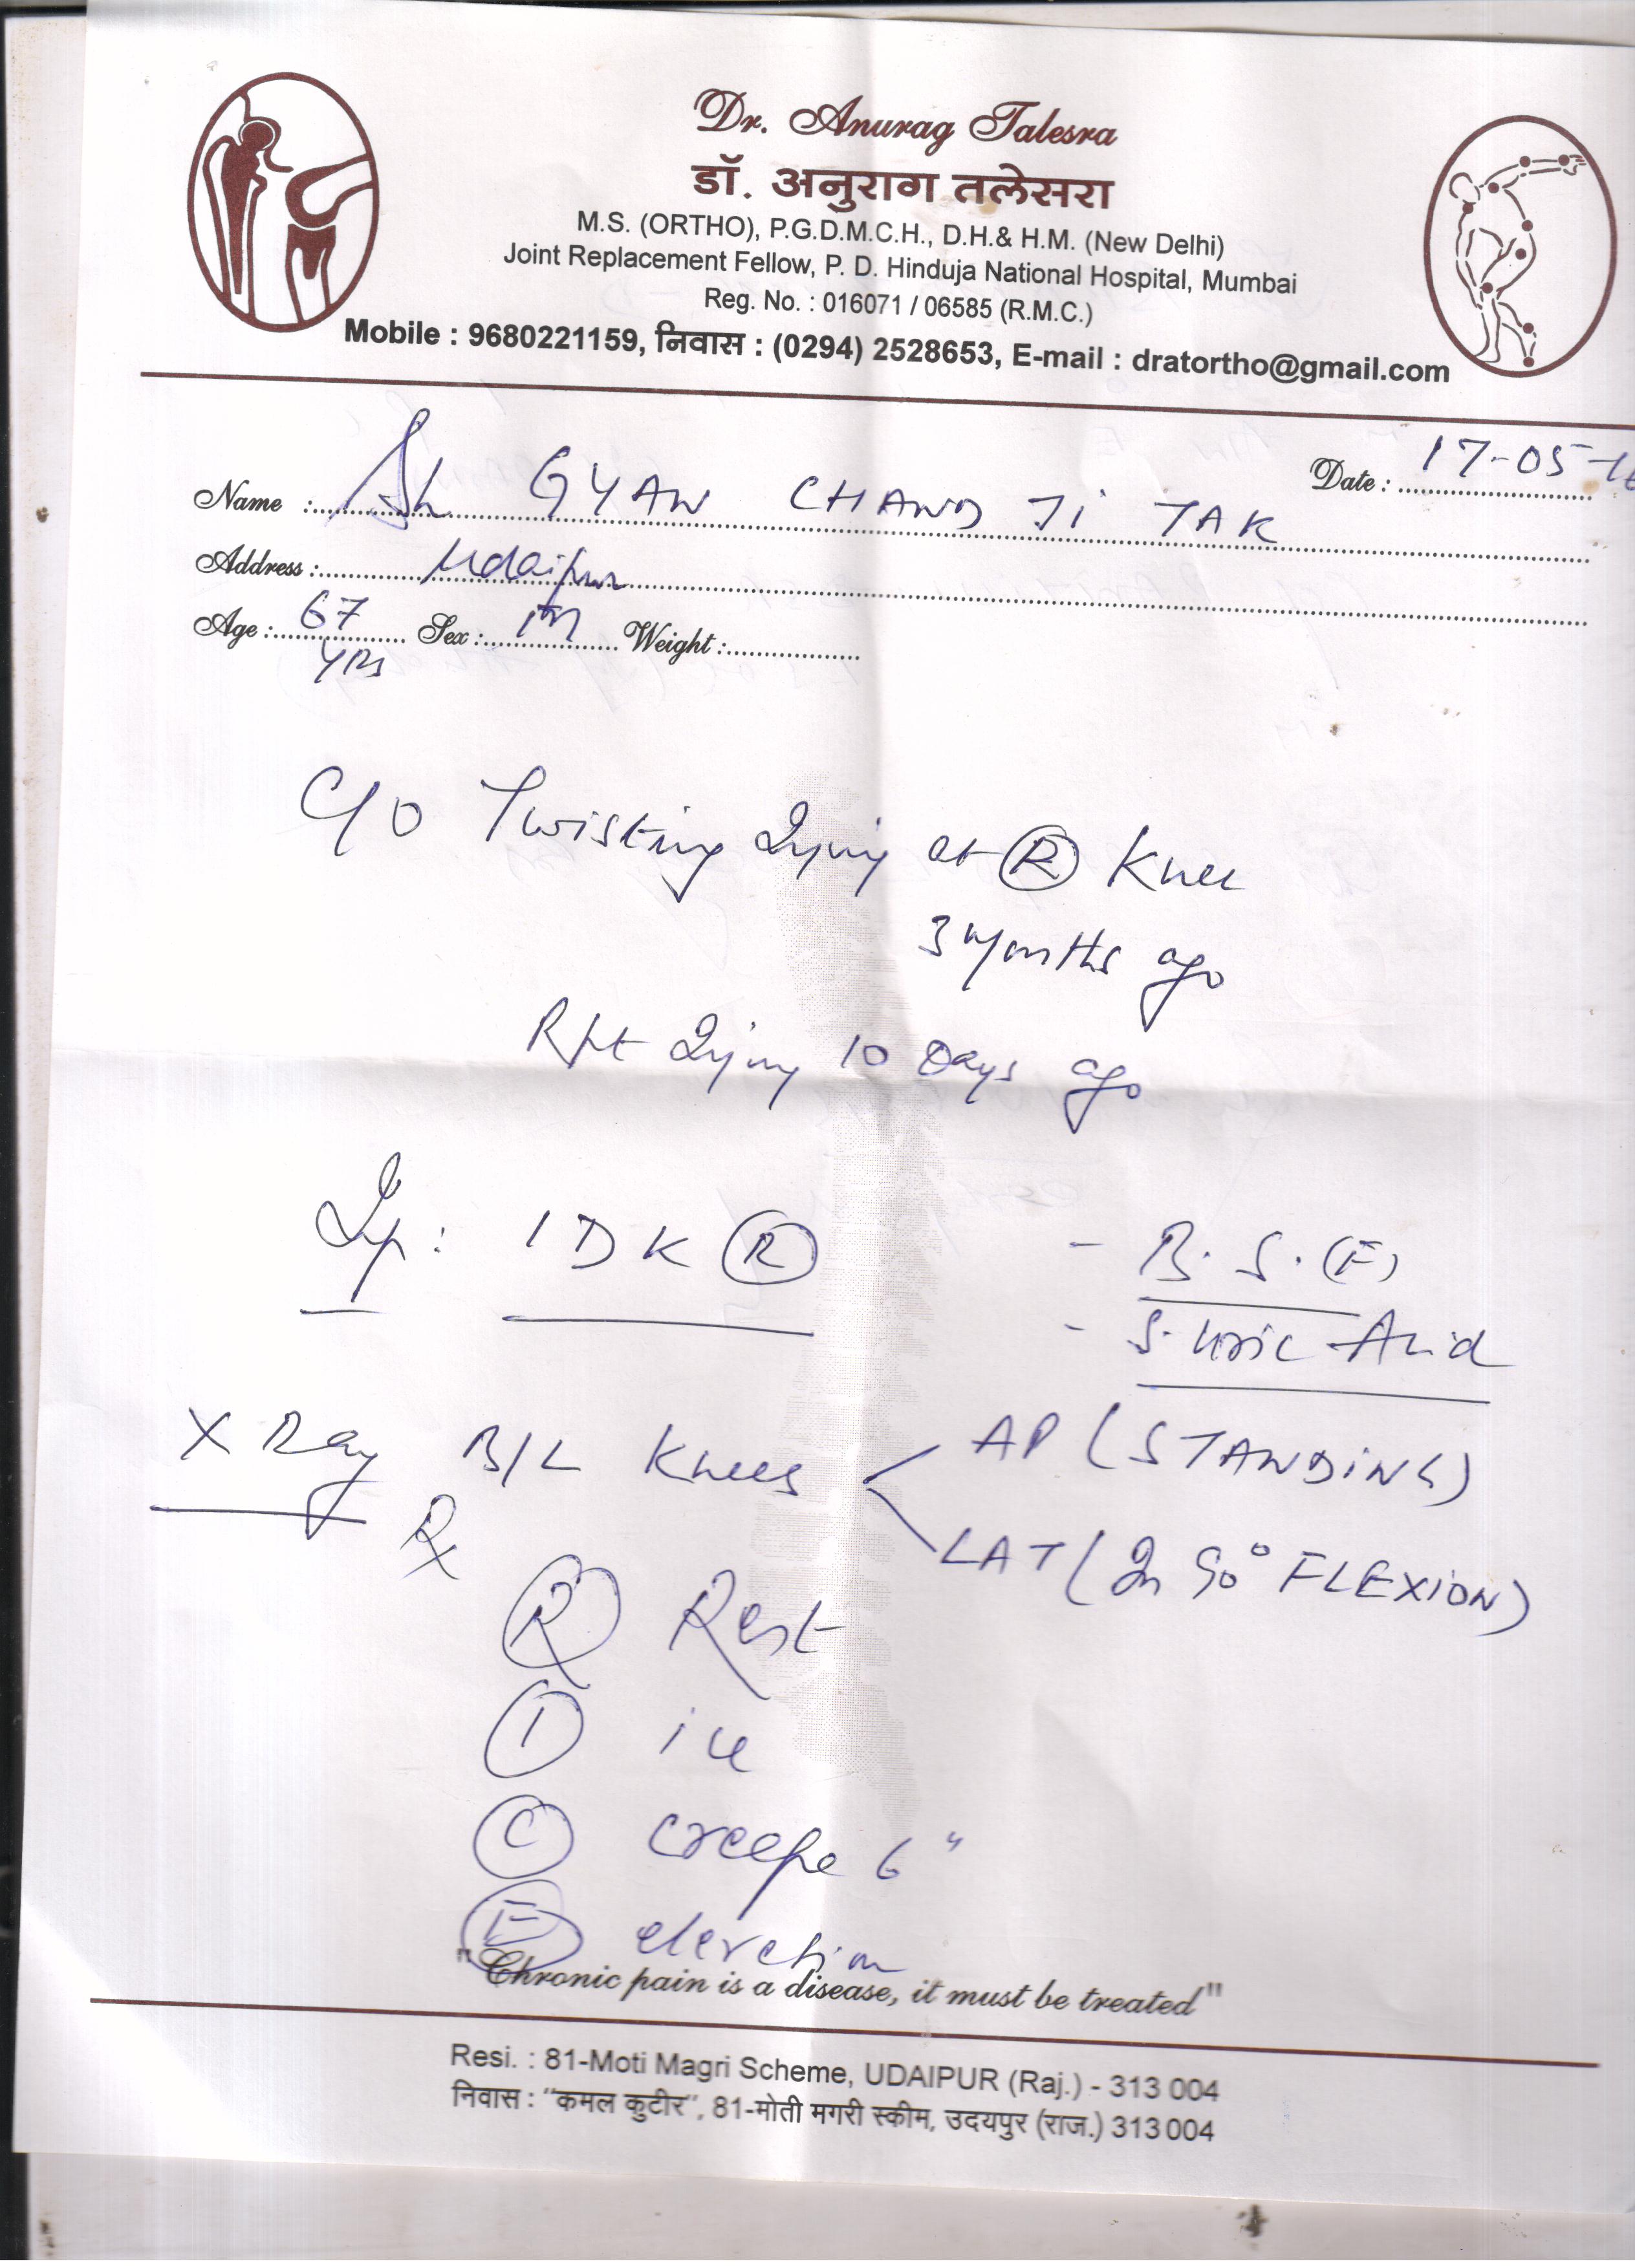 Dr. Anurag Talesra
डॉ. अनुराग तलेसरा
M.S. (ORTHO), P.G.D.M.C.H., D.H.& H.M. (New Delhi)
Joint Replacement Fellow, P. D. Hinduja National Hospital, Mumbai
Reg. No. : 016071 / 06585 (R.M.C.)
Mobile : 9680221159, निवास : (0294) 2528653, E-mail : dratortho@gmail.com
Date : 17-05-16
Name : Sh GYAN CHAND Ji TAK
Address : Udaipur
Age : 67 Yrs Sex : M Weight :
C/O Twisting Injury at R Knee
3 Months ago
Rpt Injury 10 Days ago
Imp: IDK R - B.S.(F)
- S. Uric Acid
X Ray B/L Knees < AP (STANDING)
LAT (In 90° FLEXION)
Rx
R Rest
I ice
C creepe 6"
E elevation
"Chronic pain is a disease, it must be treated"
Resi. : 81-Moti Magri Scheme, UDAIPUR (Raj.) - 313 004
निवास : "कमल कुटीर", 81-मोती मगरी स्कीम, उदयपुर (राज.) 313 004